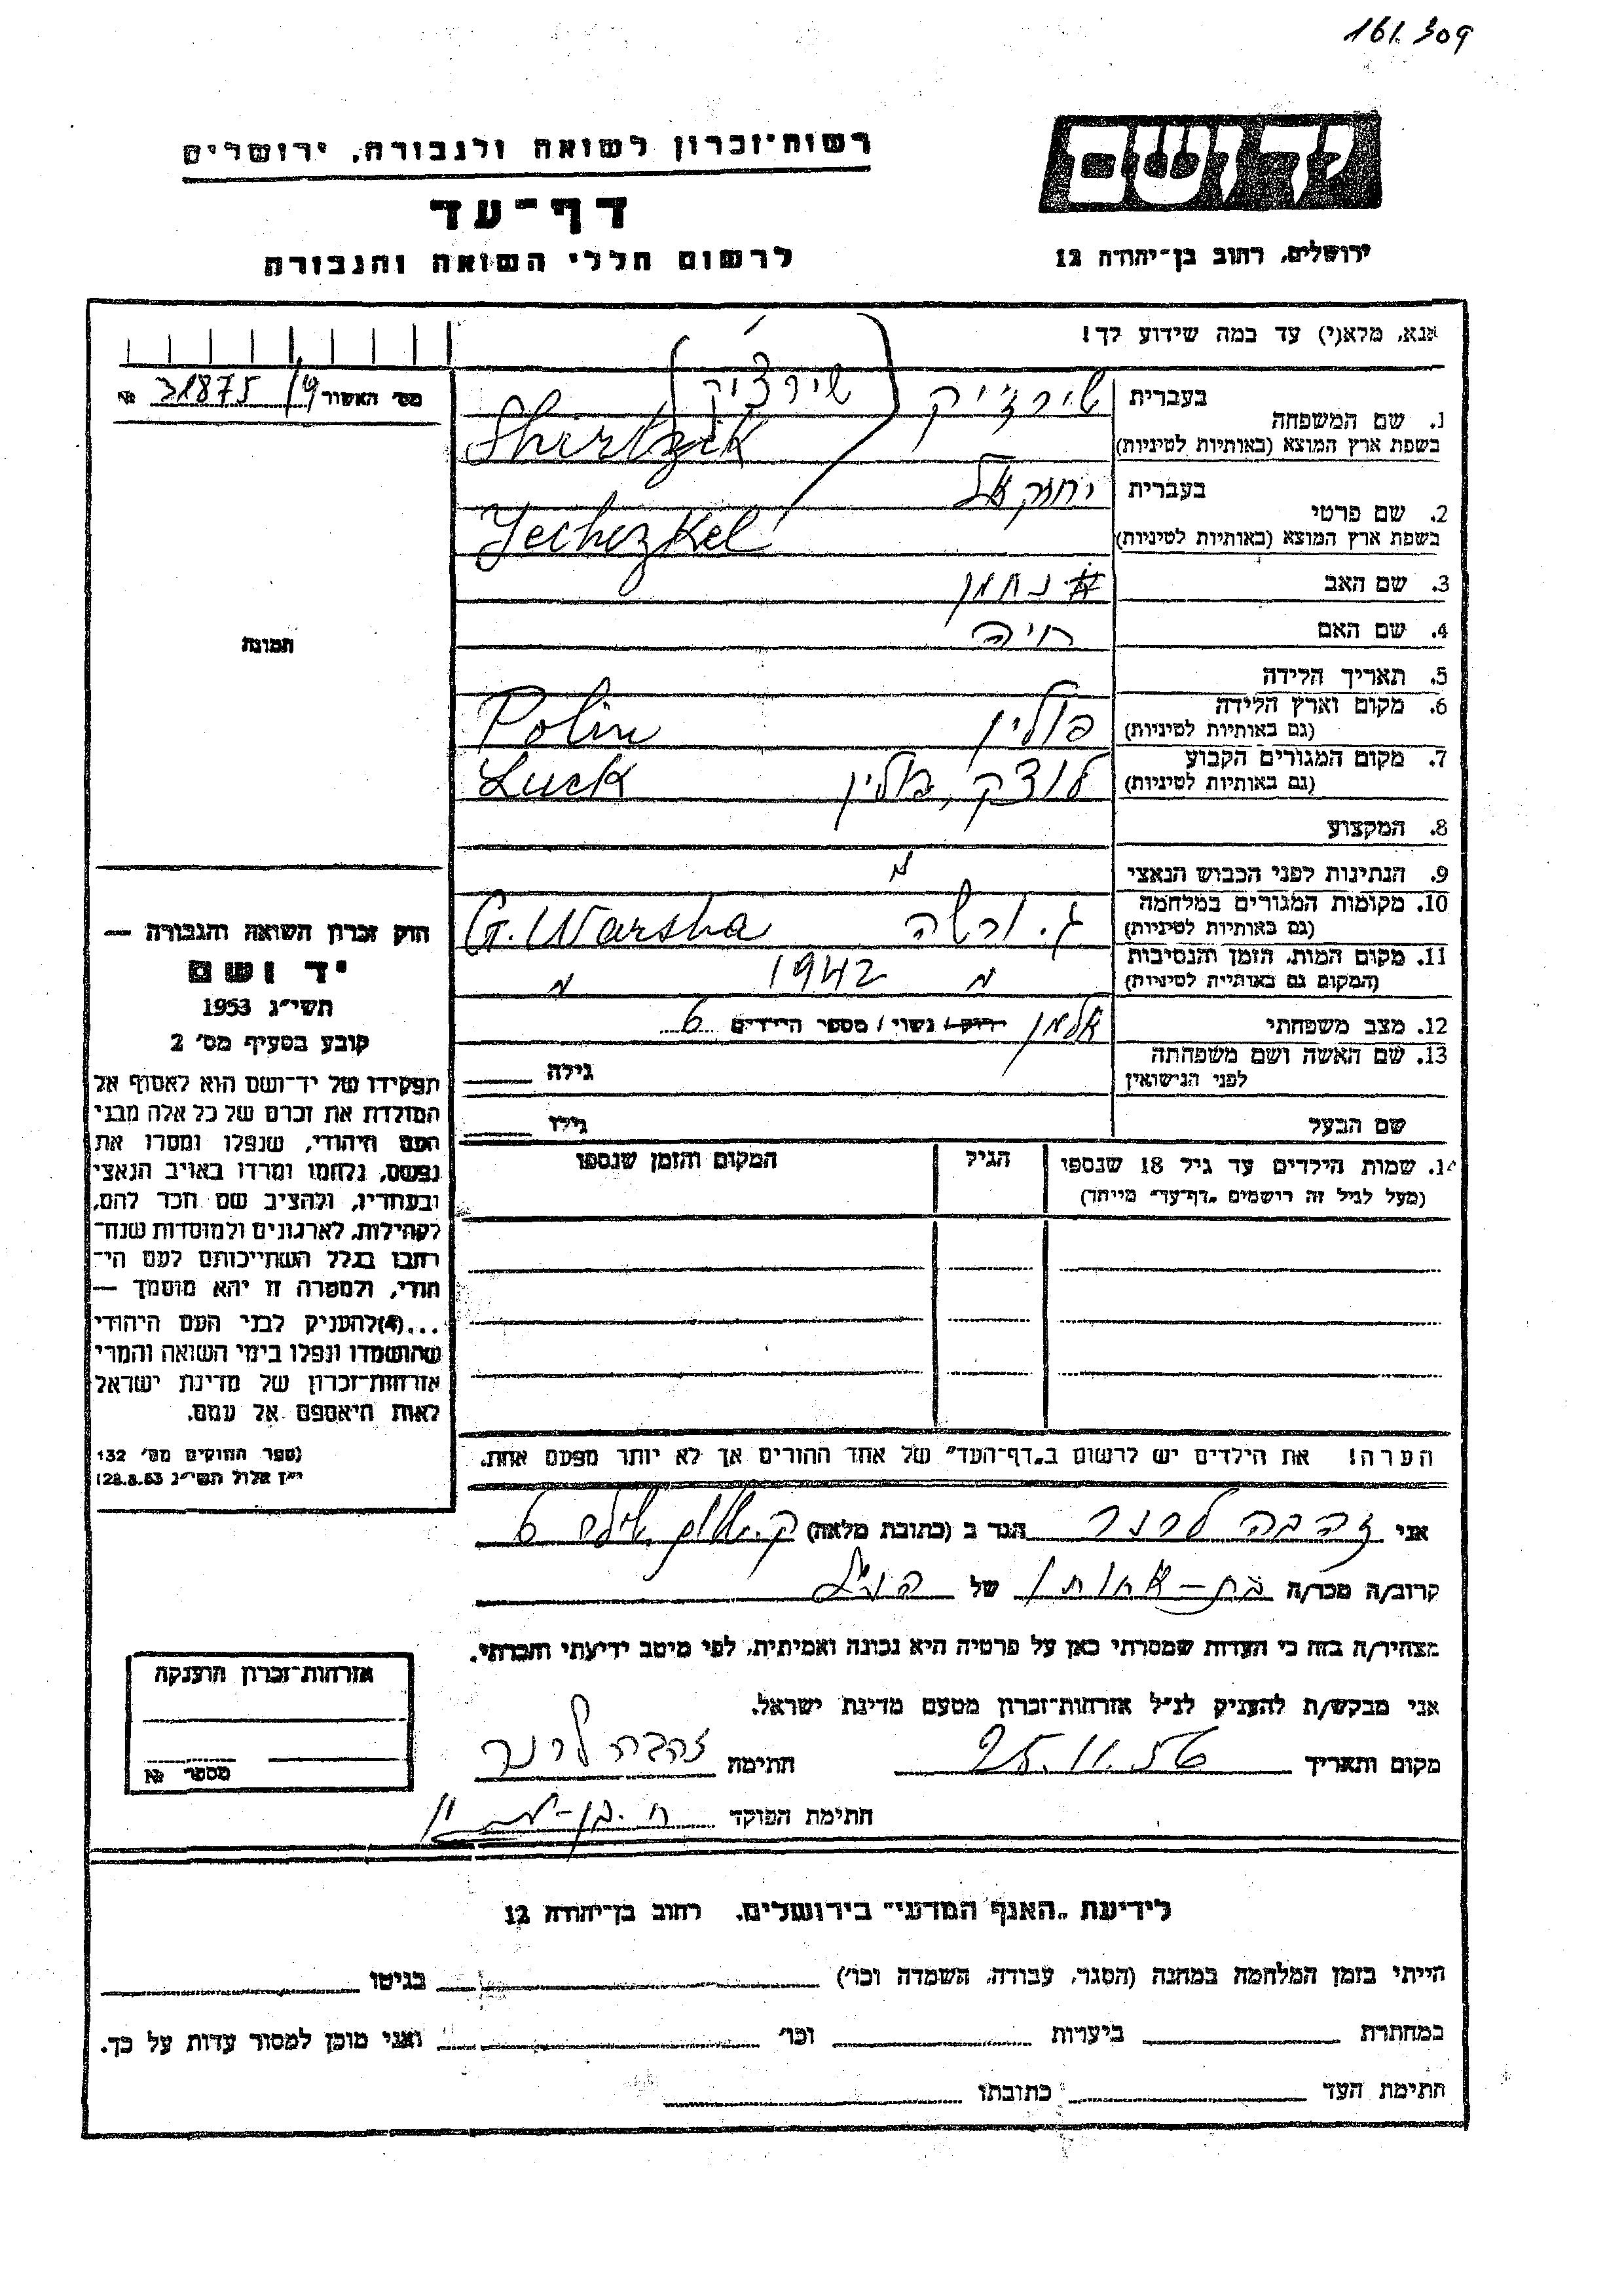 161.309
יד ושם
ירושלים, רחוב בן־יהודה 12
רשות־זכרון לשואה ולגבורה, ירושלים
דף־עד
לרשום חללי השואה והגבורה
אנא, מלא(י) עד במה שידוע לך!
מס׳ האשור 9/ 31875 №
תמונה
1. שם המשפחה
בעברית שירצ׳יק (שירציק)
בשפת ארץ המוצא (באותיות לטיניות) Shirtzik
2. שם פרטי
בעברית יחזקאל
בשפת ארץ המוצא (באותיות לטיניות) Jechezkel
3. שם האב נחמן
4. שם האם חיה
5. תאריך הלידה
6. מקום וארץ הלידה
(גם באותיות לטיניות) פולין Polin
7. מקום המגורים הקבוע
(גם באותיות לטיניות) לוצק, פולין Luck
8. המקצוע
9. הנתינות לפני הכבוש הנאצי
10. מקומות המגורים במלחמה
(גם באותיות לטיניות) ג. ורשה G. Warsha
11. מקום המות, הזמן והנסיבות
(המקום גם באותיות לטיניות) 1942
12. מצב משפחתי אלמן רווק / נשוי / מספר הילדים 6
13. שם האשה ושם משפחתה
לפני הנישואין גילה
שם הבעל גילו
14. שמות הילדים עד גיל 18 שנספו הגיל המקום והזמן שנספו
(מעל לגיל זה רושמים „דף־עד״ מייחד)
הערה! את הילדים יש לרשום ב„דף־העד״ של אחד ההורים אך לא יותר מפעם אחת.
חוק זכרון השואה והגבורה —
יד ושם
תשי״ג 1953
קובע בסעיף מס׳ 2
תפקידו של יד־ושם הוא לאסוף אל
המולדת את זכרם של כל אלה מבני
העם היהודי, שנפלו ומסרו את
נפשם, נלחמו ומרדו באויב הנאצי
ובעוזריו, ולהציב שם וזכר להם,
לקהילות, לארגונים ולמוסדות שנח־
רבו בגלל השתייכותם לעם הי־
הודי, ולמטרה זו יהא מוסמך —
...(4) להעניק לבני העם היהודי
שהושמדו ונפלו בימי השואה והמרי
אזרחות־זכרון של מדינת ישראל
לאות היאספם אל עמם.
(ספר החוקים מס׳ 132
י״ז אלול תשי״ג 28.8.53)
אני זהבה לרנר הגר ב (כתובת מלאה) ק. 6
קרוב/ה מכר/ה בת-אחותו של הנ״ל
מצהיר/ה בזה כי העדות שמסרתי כאן על פרטיה היא נכונה ואמיתית, לפי מיטב ידיעתי והכרתי.
אני מבקש/ת להעניק לנ״ל אזרחות־זכרון מטעם מדינת ישראל.
מקום ותאריך 25.11.56 חתימה זהבה לרנר
חתימת הפוקד
אזרחות־זכרון הוענקה
מספר №
לידיעת „האגף המדעי״ בירושלים, רחוב בן־יהודה 12
הייתי בזמן המלחמה במחנה (הסגר, עבודה, השמדה וכו׳) בגיטו
במחתרת ביערות וכו׳ ואני מוכן למסור עדות על כך.
חתימת העד כתובתו